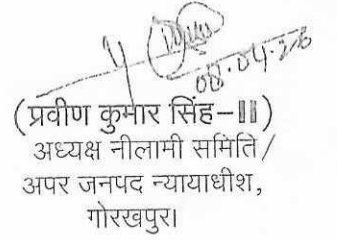 (प्रवीण कुमार सिंह–II)
अध्यक्ष नीलामी समिति/
अपर जनपद न्यायाधीश,
गोरखपुर।